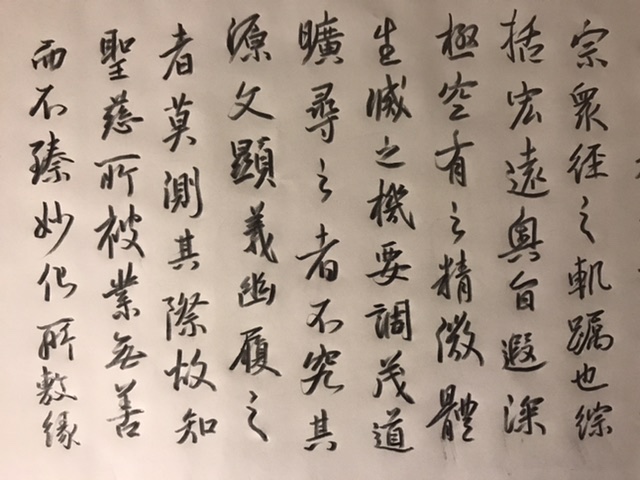 宗眾經之軌躅也綜
括宏遠奧旨遐深
極空有之精微體
生滅之機要調茂道
曠尋之者不究其
源文顯義幽履之
者莫測其際故知
聖慈所被業無善
而不臻妙化所敷緣